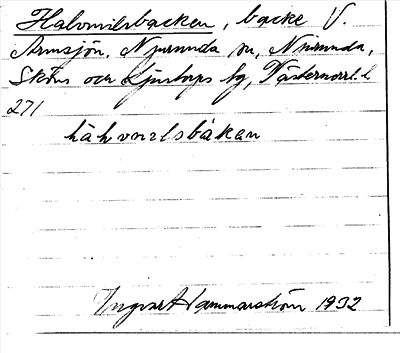 Halvmilsbacken, backe V.
Armsjön, Njurunda sn, Njurunda,
Sköns och Ljustorps tg, Västernorrl. l
271
håhvmilsbakan
Ingvar Hammarström 1932